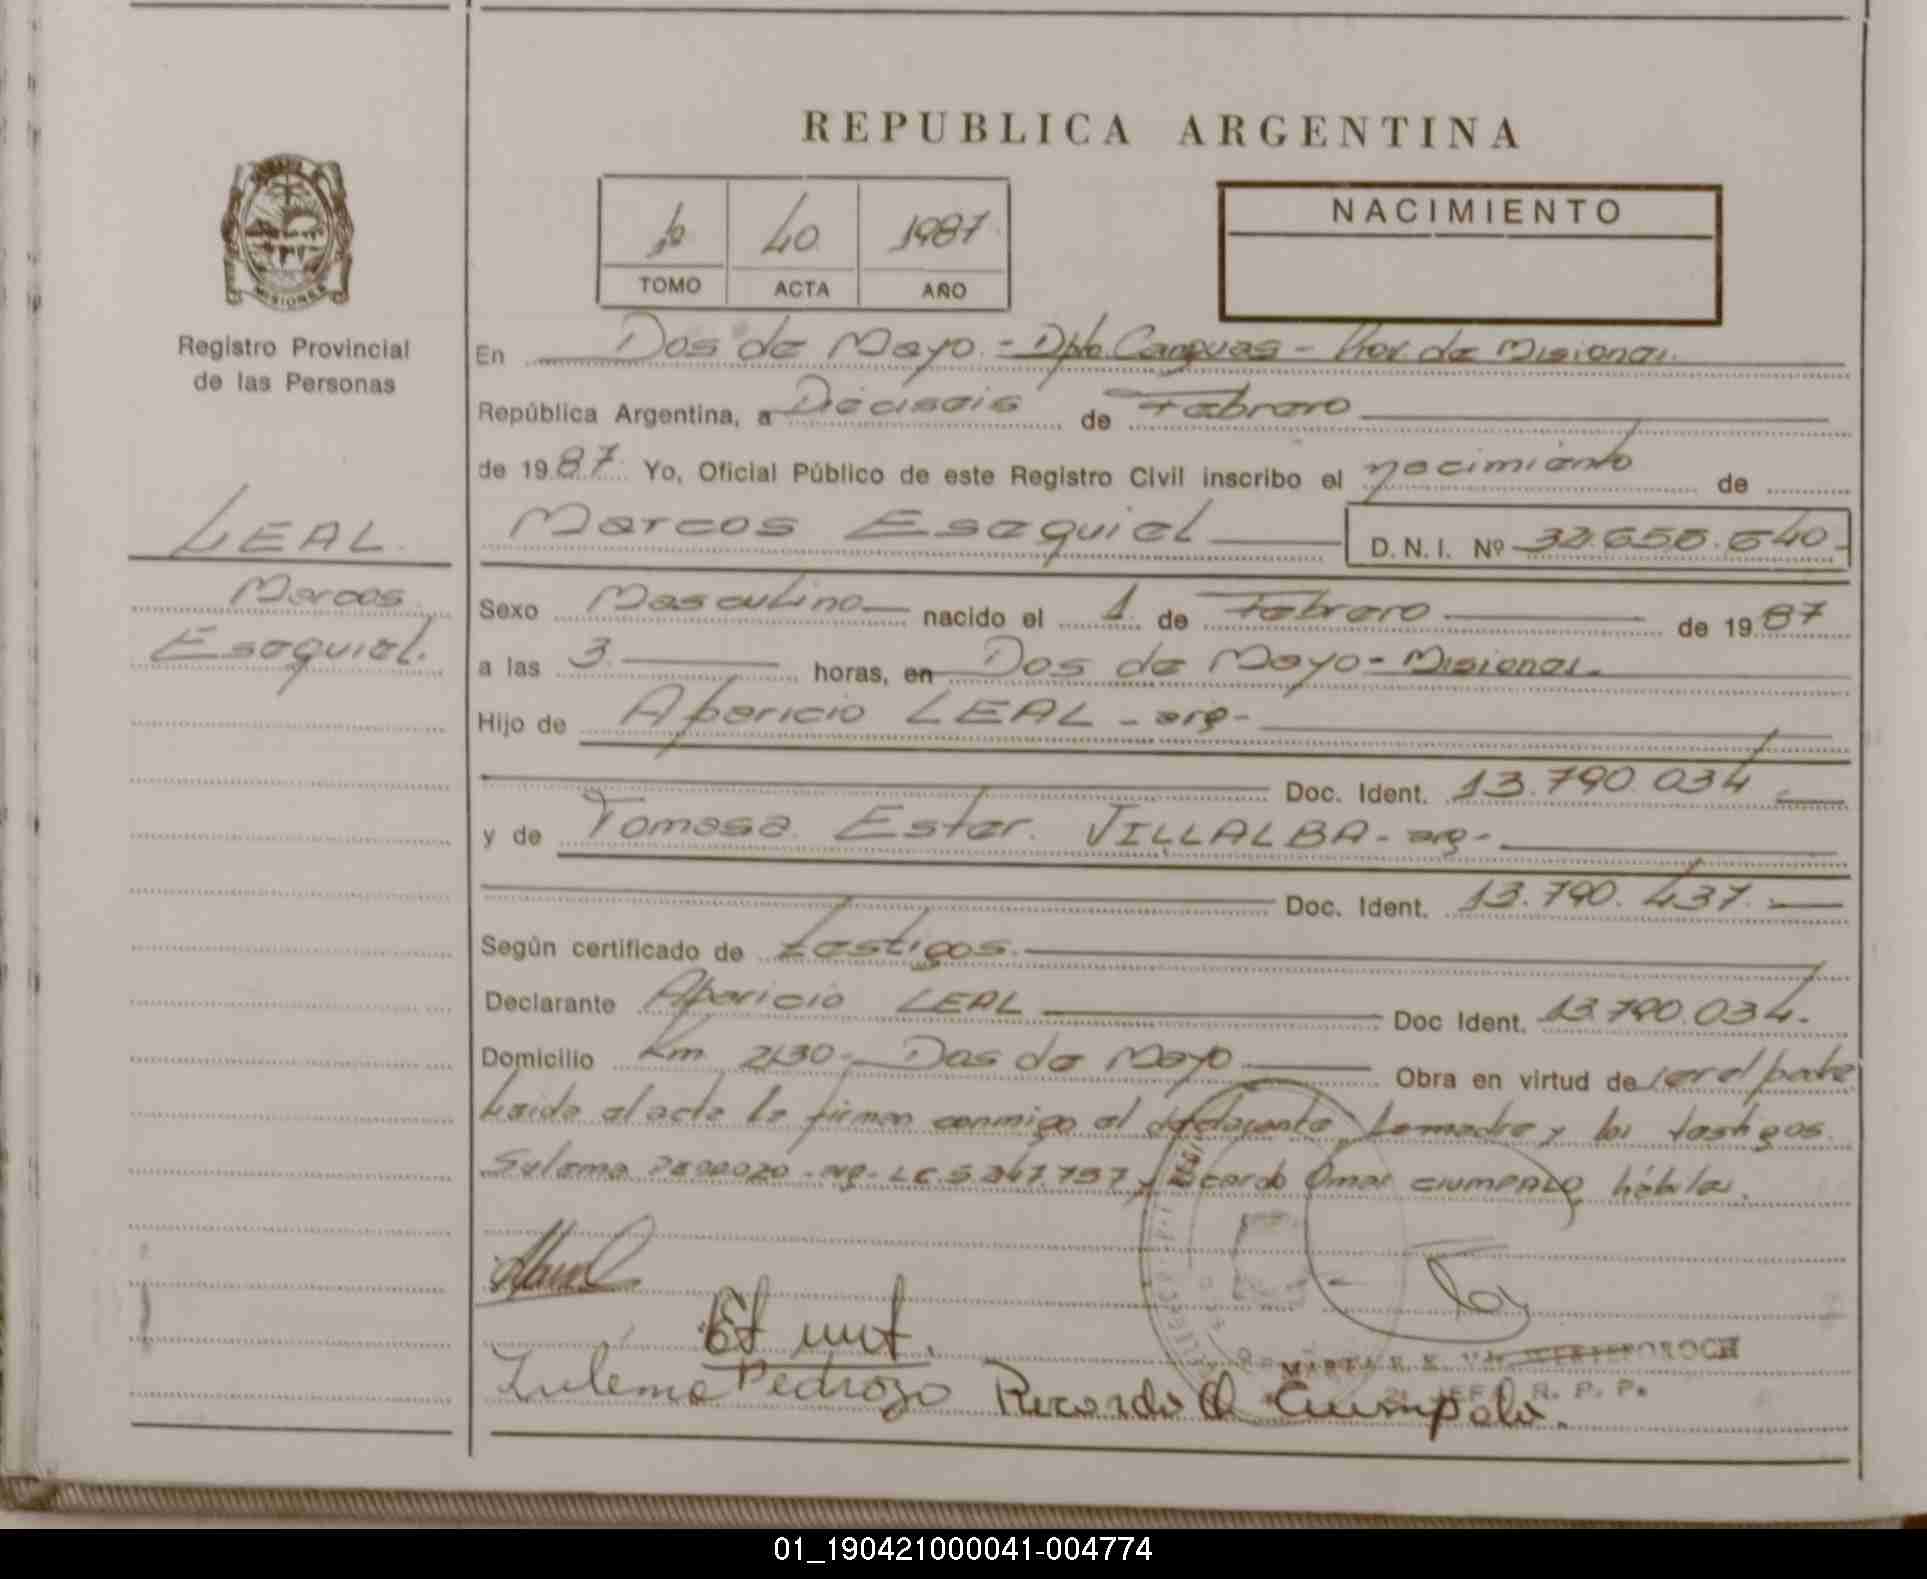 REPUBLICA ARGENTINA
1º 40 1987
TOMO ACTA AÑO
NACIMIENTO
MISIONES
Registro Provincial
de las Personas
LEAL
Marcos
Esequiel.
En Dos de Mayo - Dpto. Cainguas - Prov. de Misiones.
República Argentina, a Dieciseis de Febrero
de 1987. Yo, Oficial Público de este Registro Civil inscribo el nacimiento de
Marcos Esequiel D. N. I. Nº 32.656.640
Sexo Masculino nacido el 1 de Febrero de 1987
a las 3 horas, en Dos de Mayo - Misiones.
Hijo de Aparicio LEAL - arg -
Doc. Ident. 13.790.034
y de Tomasa Ester VILLALBA - arg -
Doc. Ident. 13.790.437.
Según certificado de testigos.
Declarante Aparicio LEAL Doc Ident. 13.790.034.
Domicilio Km 230 - Dos de Mayo Obra en virtud de ser el padre
Leida el acta la firman conmigo el declarante, la madre y los testigos
Sulema PEDROZO - arg - L.C. 5.247.757 y Ricardo Omar CIUMPALO, hábiles.
Zulema Pedrozo Ricardo O Ciumpalo.
JEFE R. P. P.
01_190421000041-004774